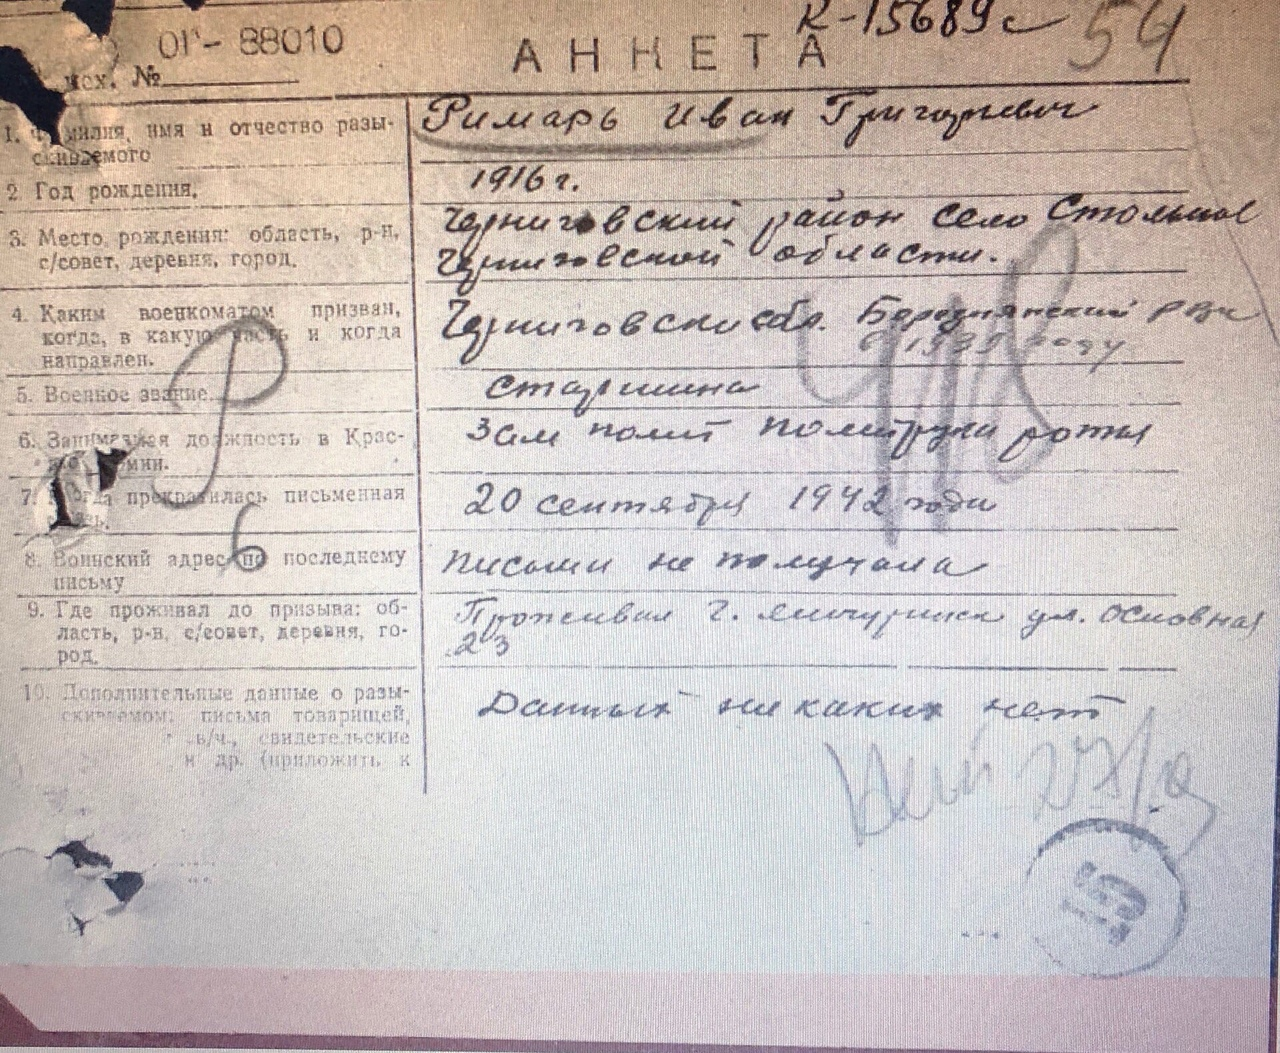 К-15689с 54
ОГ - 88010
исх. №
АНКЕТА
1. Фамилия, имя и отчество разы-
скиваемого
Римарь Иван Григорьевич
2. Год рождения.
1916 г.
3. Место рождения: область, р-н,
с/совет, деревня, город.
Черниговский район село Стольное
Черниговской области.
4. Каким военкоматом призван,
когда, в какую часть и когда
направлен.
Черниговский обл. Березнянский рвк
в 1939 году
5. Военное звание.
старшина
6. Занимаемая должность в Крас-
ной Армии.
Зам полит политрука роты
7. Когда прекратилась письменная
связь.
20 сентября 1942 года
8. Воинский адрес по последнему
письму
письми не получала
9. Где проживал до призыва: об-
ласть, р-н, с/совет, деревня, го-
род.
Проживал г. Мичуринск ул. Основная
23
10. Дополнительные данные о разы-
скиваемом: письма товарищей,
в/ч., свидетельские
и др. (приложить к
Данных ни каких нет
Р
6